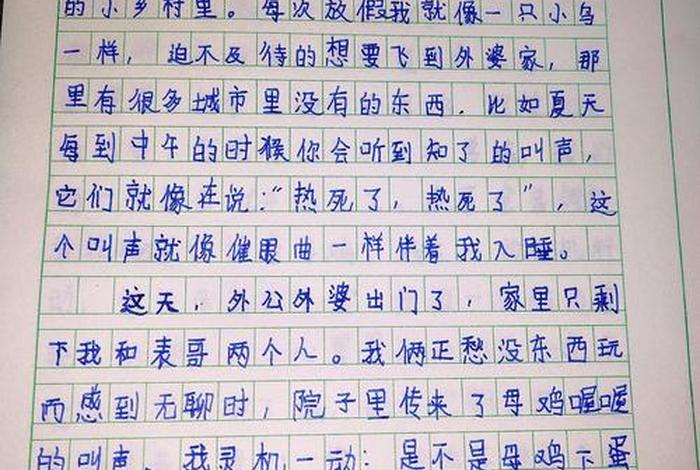 的小乡村里。每次放假我就像一只小鸟
一样，迫不及待的想要飞到外婆家，那
里有很多城市里没有的东西．比如夏天
每到中午的时猴你会听到知了的叫声，
它们就像在说：“热死了，热死了”，这
个叫声就像催眠曲一样伴着我入睡。
这天，外公外婆出门了，家里只剩
下我和表哥两个人。我俩正愁没东西玩
而感到无聊时，院子里传来了母鸡喔喔
的叫声，我灵机一动：是不是母鸡下蛋